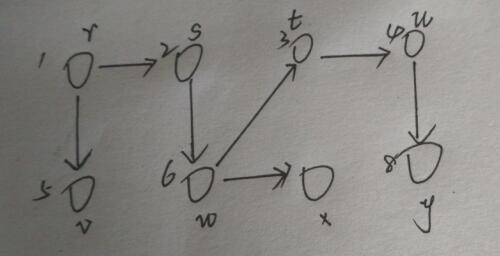 1 r 2 s 3 t 4 u
5 v 6 w x 8 y